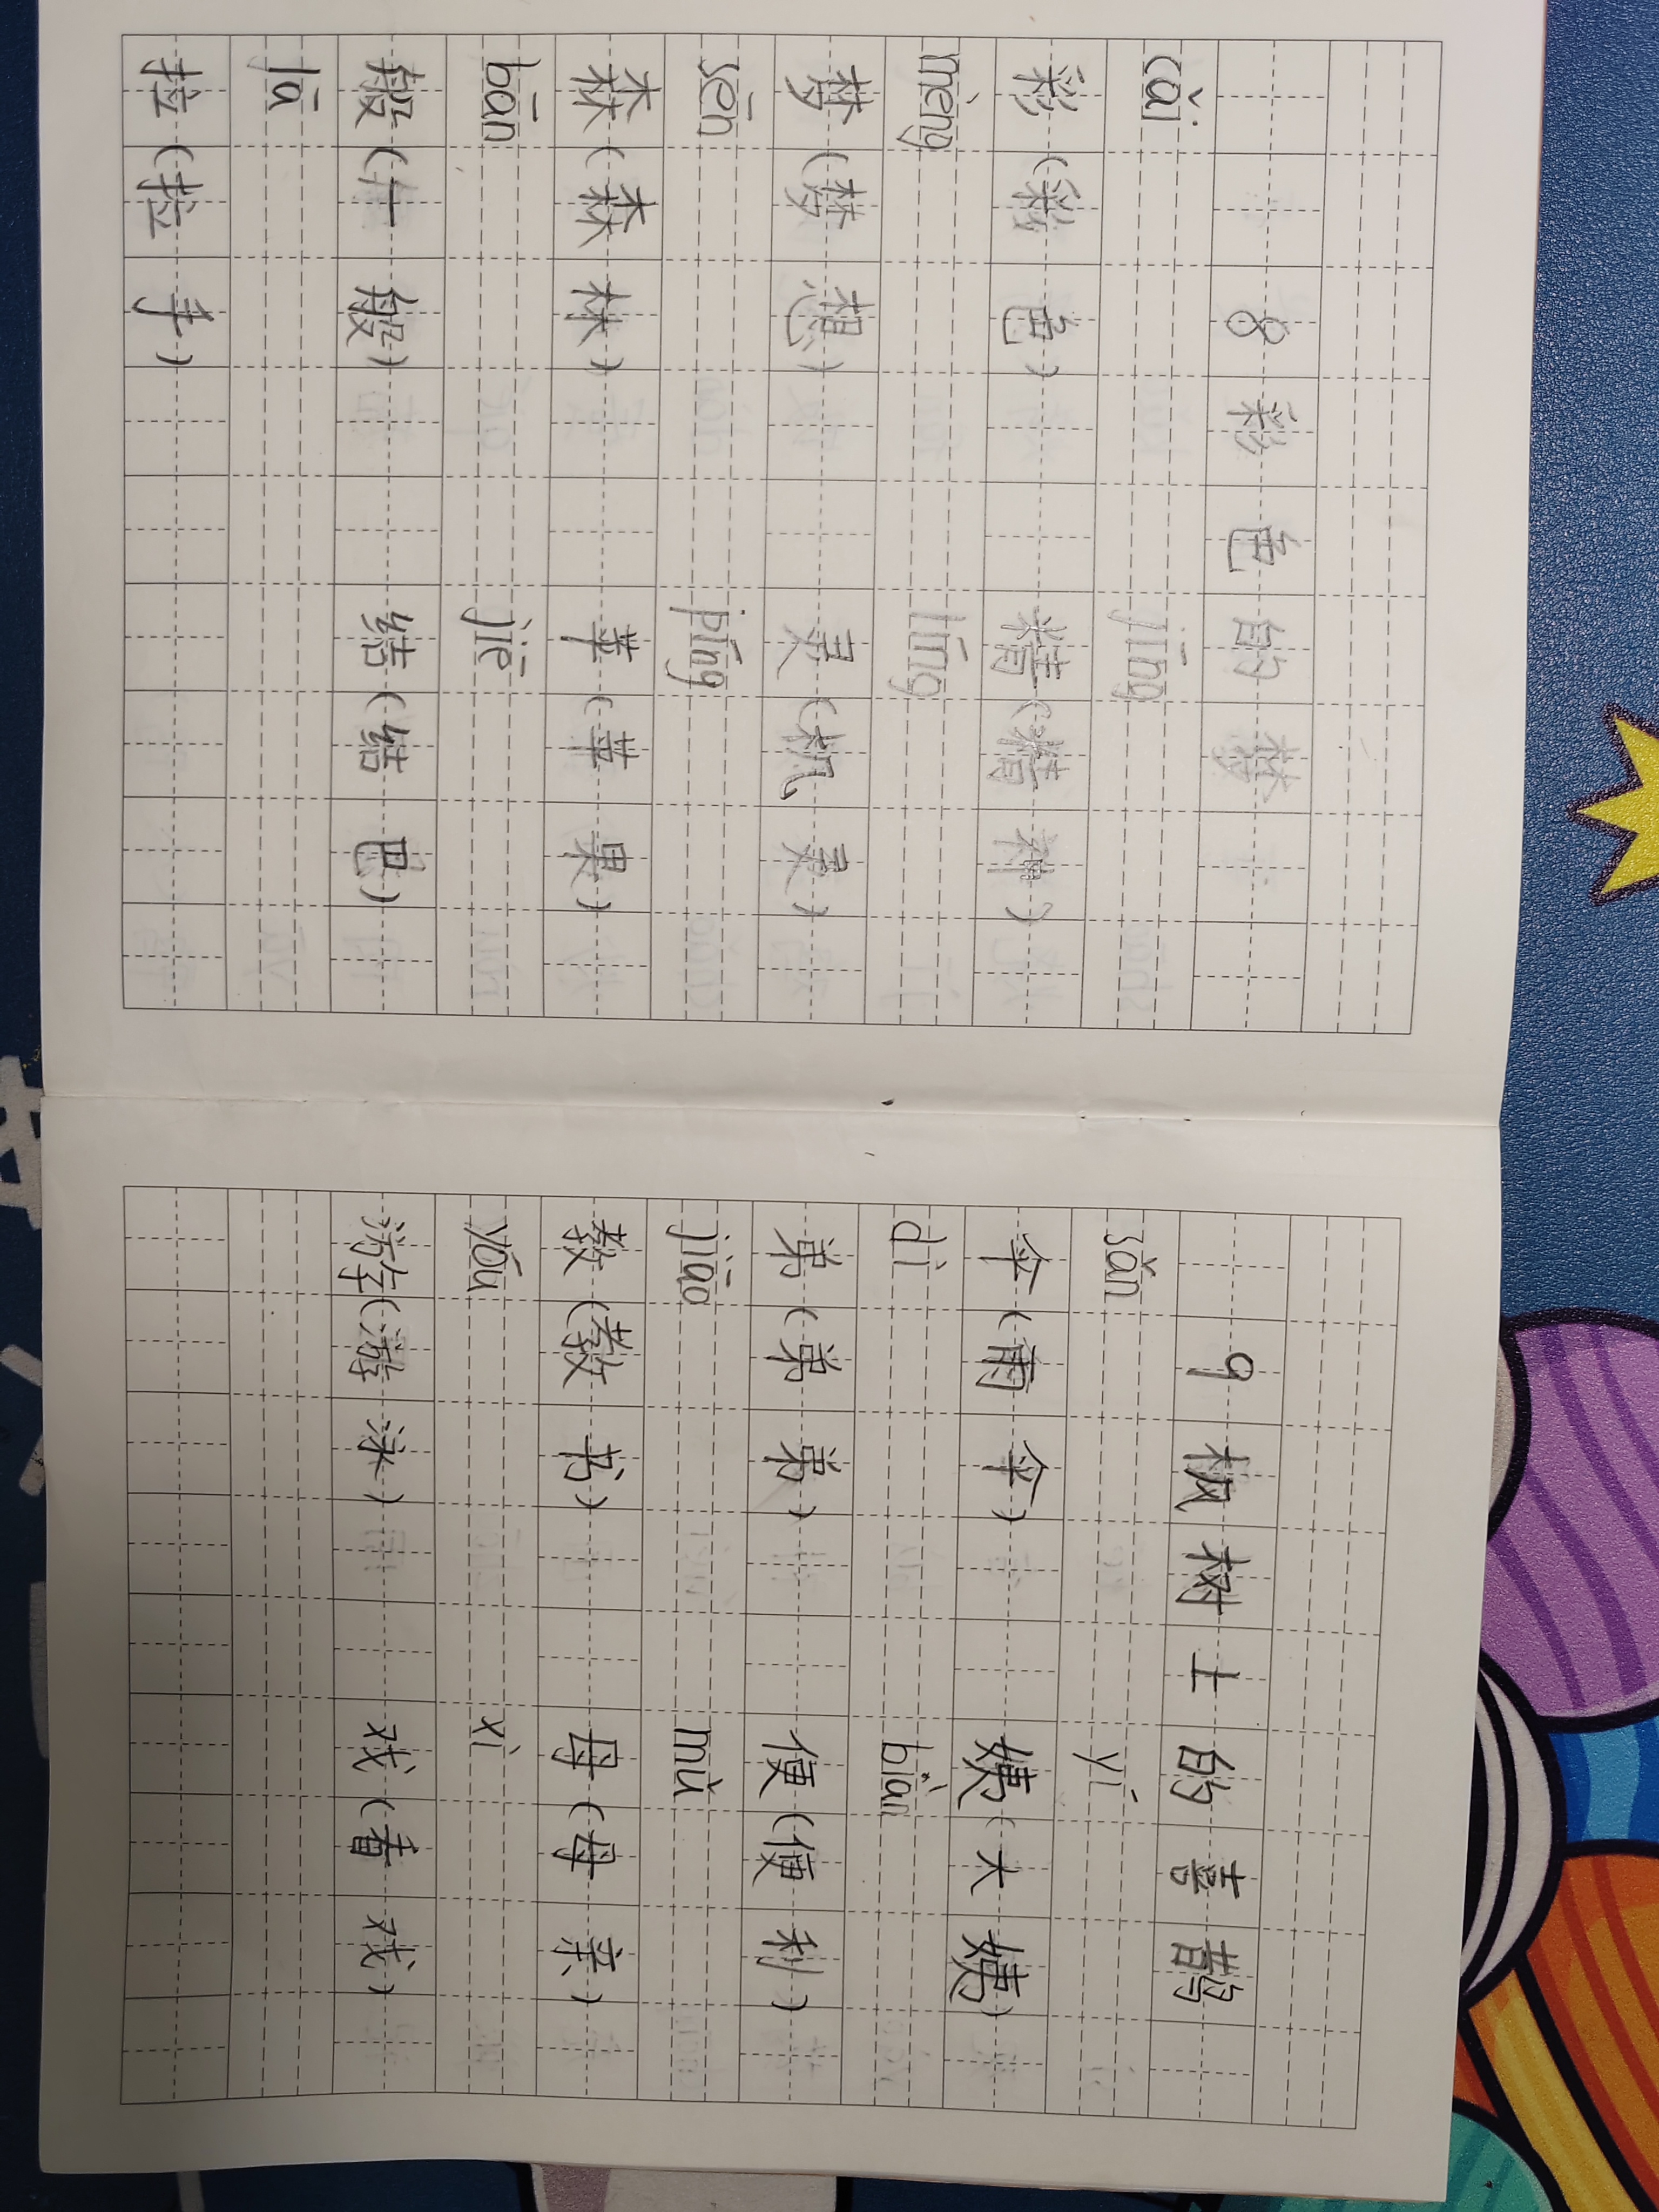 8 彩色的梦
cǎi jīng
彩(彩色) 精(精神)
mèng líng
梦(梦想) 灵(机灵)
sēn píng
森(森林) 苹(苹果)
bān jiē
般(一般) 结(结巴)
lā
拉(拉手)
9 枫树上的喜鹊
sǎn yí
伞(雨伞) 姨(大姨)
dì biàn
弟(弟弟) 便(便利)
jiāo mǔ
教(教书) 母(母亲)
yóu xì
游(游泳) 戏(看戏)